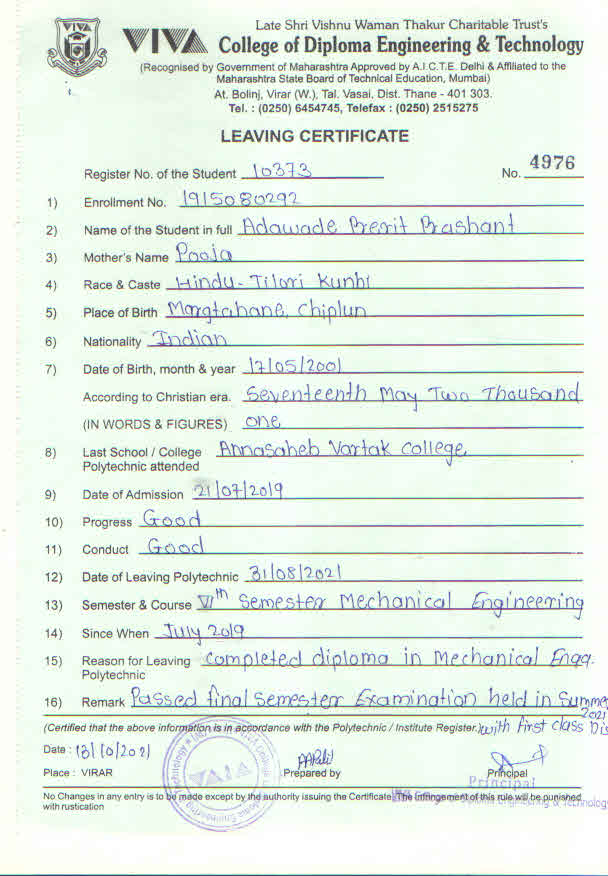 Late Shri Vishnu Waman Thakur Charitable Trust's
VIVA College of Diploma Engineering & Technology
(Recognised by Government of Maharashtra Approved by A.I.C.T.E. Delhi & Affiliated to the
Maharashtra State Board of Technical Education, Mumbai)
At. Bolinj, Virar (W.), Tal. Vasai, Dist. Thane - 401 303.
Tel. : (0250) 6454745, Telefax : (0250) 2515275
LEAVING CERTIFICATE
Register No. of the Student 10373 No. 4976
1) Enrollment No. 1915080292
2) Name of the Student in full Adawade Prerit Prashant
3) Mother's Name Pooja
4) Race & Caste Hindu - Tilori Kunbi
5) Place of Birth Margtahane, Chiplun
6) Nationality Indian
7) Date of Birth, month & year 17/05/2001
According to Christian era. Seventeenth May Two Thousand
(IN WORDS & FIGURES) one
8) Last School / College Annasaheb Vartak College
Polytechnic attended
9) Date of Admission 21/07/2019
10) Progress Good
11) Conduct Good
12) Date of Leaving Polytechnic 31/08/2021
13) Semester & Course VIth Semester Mechanical Engineering
14) Since When July 2019
15) Reason for Leaving completed diploma in Mechanical Engg.
Polytechnic
16) Remark Passed final Semester Examination held in Summer
2021
(Certified that the above information is in accordance with the Polytechnic / Institute Register.) with first class Dis
Date : 13/10/2021
Place : VIRAR Prepared by Principal
Principal
No Changes in any entry is to be made except by the authority issuing the Certificate. The infringement of this rule will be punished
with rustication
Diploma Engineering & Technology
VIVA